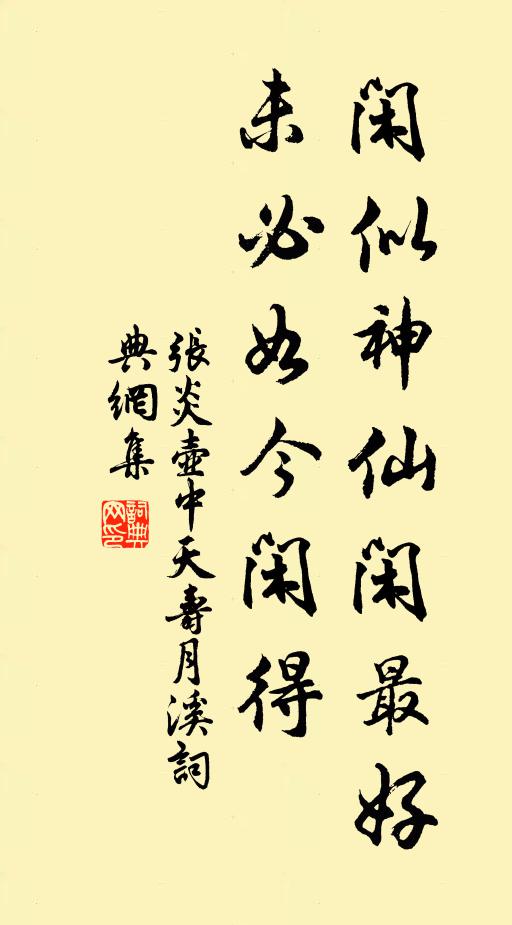 闲似神仙闲最好
未必如今闲得
張炎壺中天壽月溪詞
典網集
詞典网印